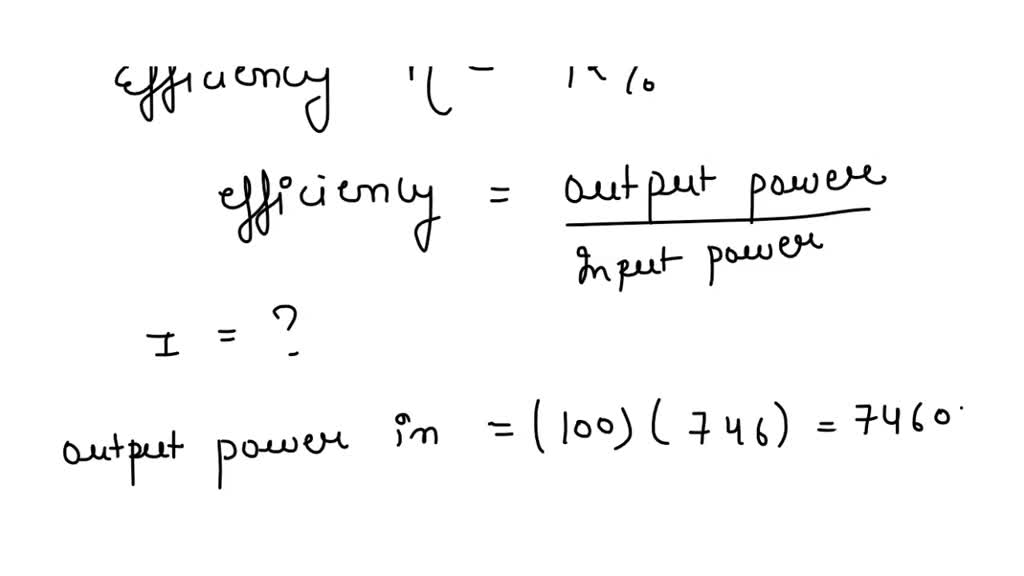 efficiency η = %
efficiency = output power
Input power
I = ?
output power in = (100)(746) = 7460